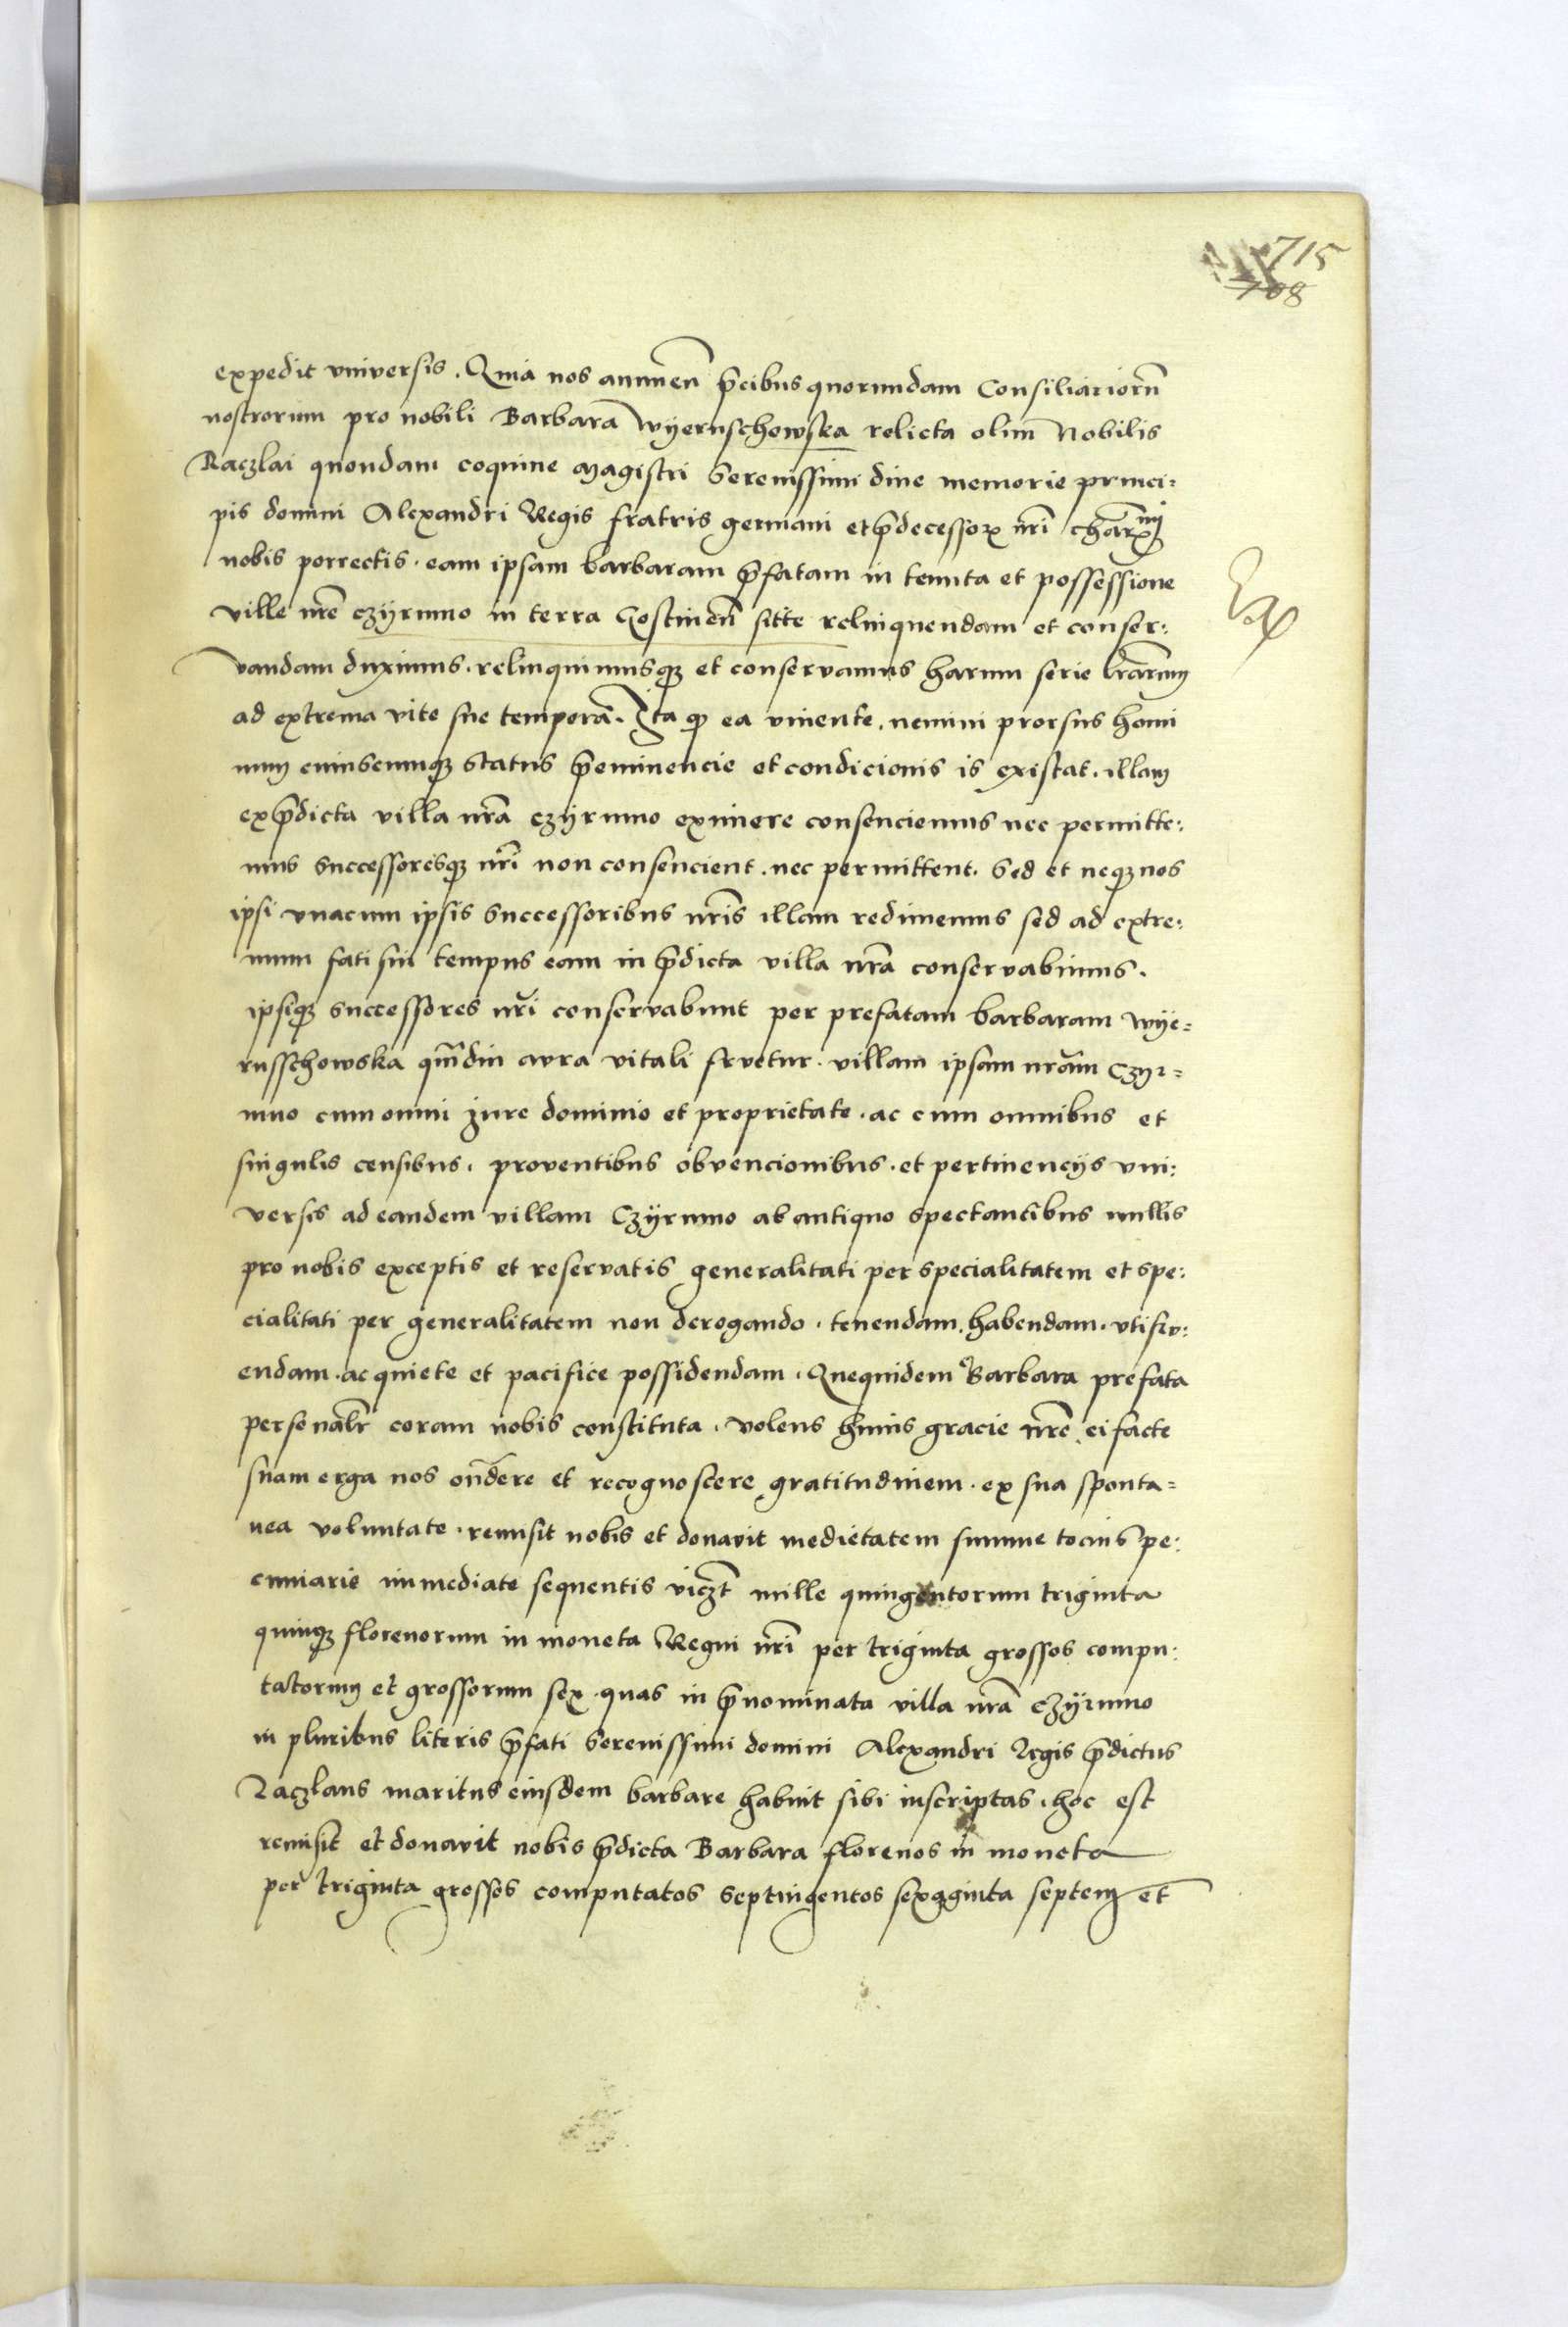 715
708
expedit vniversis. Quia nos annuen̄ p̄cibus quorundam Consiliariorū
nostrorum pro nobili Barbara Wyerusschowska relicta olim Nobilis
Raczlai quondam coquine magistri Serenissimi diue memorie princi:
pis domini Alexandri Regis fratris germani et p̄decessoꝝ nr̄i charꝝmi
nobis porrectis. eam ipsam barbaram p̄fatam in tenuta et possessione
ville nr̄e Czyrmno in terra Gostinen̄ sitte relinquendam et conser:
vandam duximus. relinquimusqꝫ et conservamus harum serie lr̄arum
ad extrema vite sue tempora. Ita qꝫ ea viuente. nemini prorsus homi
num cuiuscumqꝫ status p̄eminencie et condicionis is existat. illam
ex p̄dicta villa nr̄a Czyrmno eximere consenciemus nec permitte:
mus successoresqꝫ nr̄i non consencient. nec permittent. Sed et neqꝫ nos
ipsi vnacum ipsis successoribus nr̄is illam redimemus sed ad extre:
mum fati sui tempus eam in p̄dicta villa nr̄a conservabimus.
ipsiqꝫ successores nr̄i conservabunt per prefatam barbaram Wye=
russchowska qm̄diu avra vitali frvetur. villam ipsam nr̄am Czyr=
mno cum omni jure dominio et proprietate. ac cum omnibus et
singulis censibus. proventibus obvencionibus. et pertinencijs vni:
versis ad eandem villam Czyrmno ab antiquo spectantibus nullis
pro nobis exceptis et reservatis generalitati per specialitatem et spe:
cialitati per generalitatem non derogando. tenendam. habendam. vtifrv:
endam. ac quiete et pacifice possidendam. Quequidem Barbara prefata
personalr̄ coram nobis constituta. volens huius gracie nr̄e ei facte
suam erga nos on̄dere et recognoscere gratitudinem. ex sua sponta=
nea voluntate. remisit nobis et donavit medietatem summe tocius pe:
cuniarie immediate sequentis viczt̄ mille quingentorum triginta
quinqꝫ florenorum in moneta Regni nr̄i per triginta grossos compu:
tatorum et grossorum sex. quas in p̄nominata villa nr̄a Czyrmno
in pluribus literis p̄fati Serenissimi domini Alexandri Regis p̄dictus
Raczlaus maritus eiusdem barbare habuit sibi inscriptas. hoc est
remisit et donavit nobis p̄dicta Barbara florenos in moneta
per triginta grossos computatos septingentos sexaginta septem et